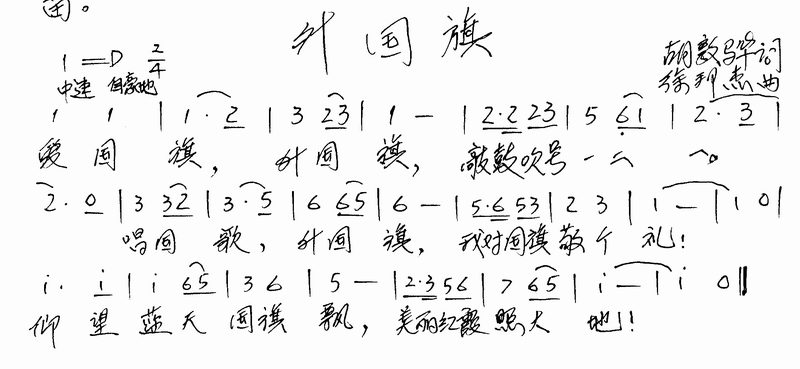 面。
升国旗
1=D 2/4
中速 自豪地
胡敦骅词
徐邦杰曲
1 1 | 1·2 | 3 23 | 1 - | 2·2 23 | 5 61 | 2·3 |
爱国旗,升国旗,敲鼓吹号一二一。
2·0 | 3 32 | 3·5 | 6 65 | 6 - | 5·6 53 | 2 3 | 1 - | 1 0 |
唱国歌,升国旗,我对国旗敬个礼!
i· i | i 65 | 3 6 | 5 - | 2·3 56 | 7 65 | i - | i 0 ‖
仰望蓝天国旗飘,美丽红霞照大地!!